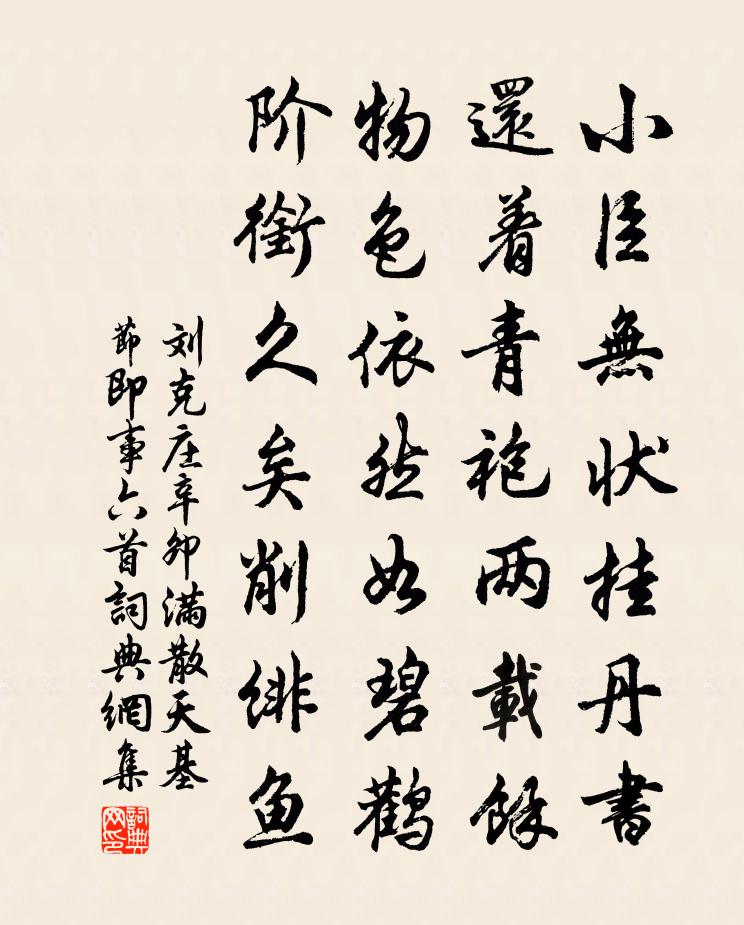 小臣無状挂丹書
還着青袍两載餘
物色依然如碧鹳
阶銜久矣削绯鱼
刘克庄辛卯满散天基
節即事六首詞典網集
詞典网印